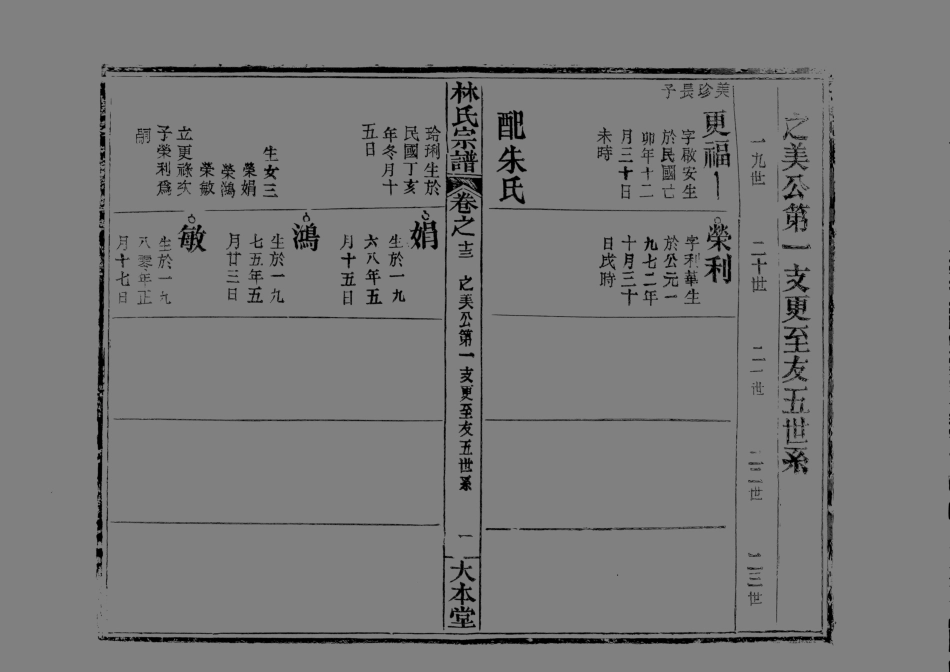 之美公第一支更至友五世系
一九世
二十世
二一世
二二世
二三世
美珍長子
更福
字啟安生
於民國亡
卯年十二
月三十日
未時
配朱氏
榮利
字利華生
於公元一
九七二年
十月三十
日戌時
林氏宗譜
卷之十三
之美公第一支更至友五世系
一
大本堂
玲琍生於
民國丁亥
年冬月十
五日
生女三
榮娟
榮鴻
榮敏
立更祿次
子榮利爲
嗣
娟
生於一九
六八年五
月十五日
鴻
生於一九
七五年五
月廿三日
敏
生於一九
八零年正
月十七日